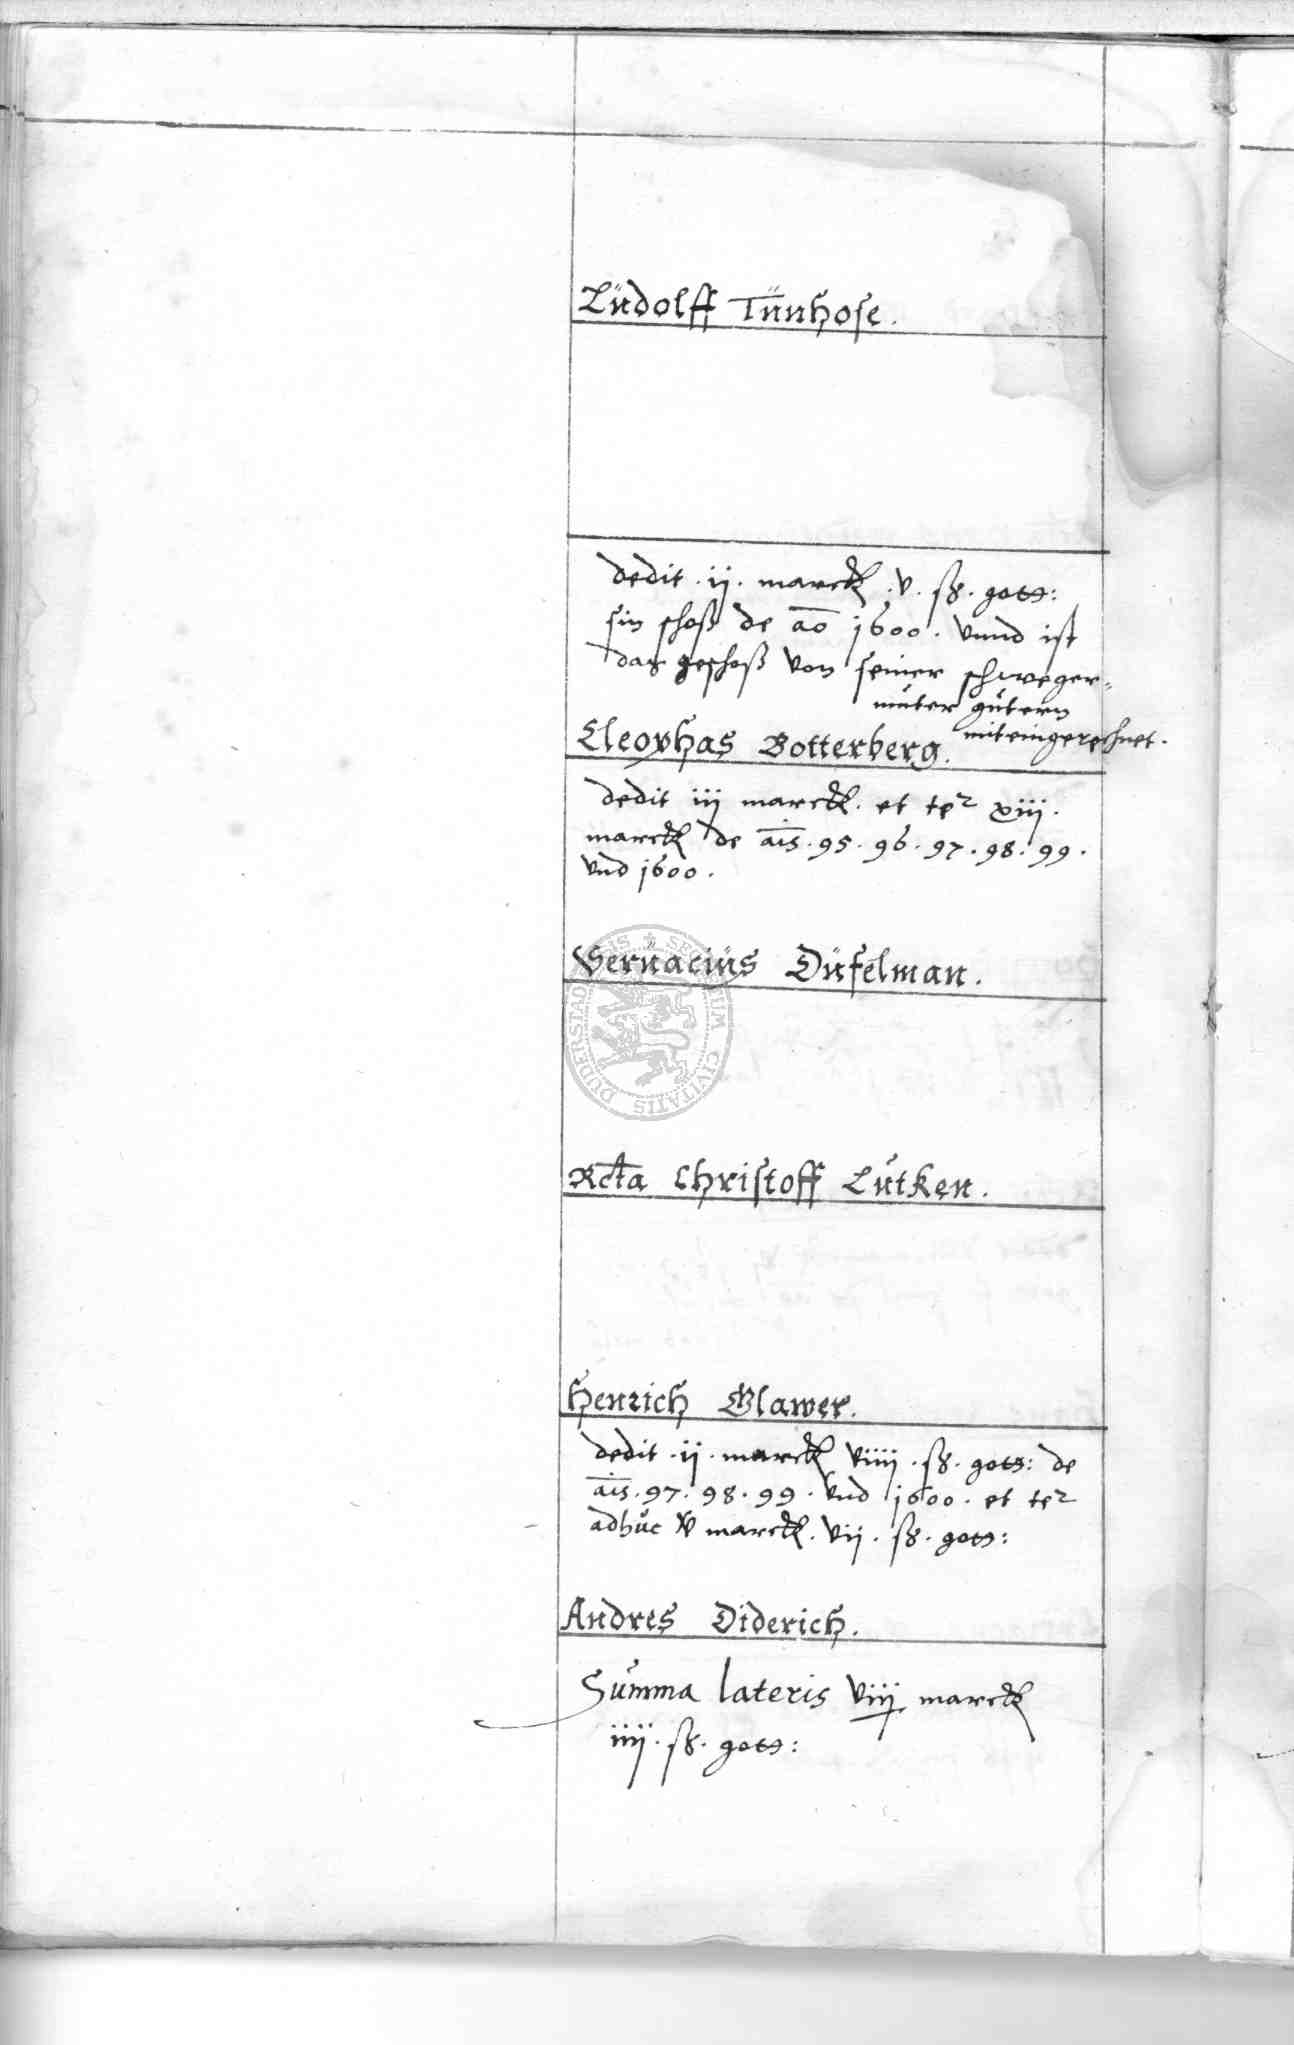 Lüdolff Tünhose.
dedit . ij . marck . v . ß . gots:
sin schoß de ao 1600 . vnnd ist
das geschoß von seiner schweger-
müter gütern
miteingerechnet.
Cleophas Botterberg.
dedit iij marck . et ter xiij .
marck de ais . 95 . 96 . 97 . 98 . 99 .
vnd 1600 .
Servacius Düfelman.
SIGILLUM CIVITATIS DUDERSTAD
Rcta Christoff Lütken.
Henrich Glawer.
dedit . ij . marck viiij . ß . gots: de
ais . 97 . 98 . 99 . vnd 1600 . et ter
adhüc v marck . vij . ß . gots:
Andres Diderich.
Summa lateris viij marck
iiij . ß . gots: